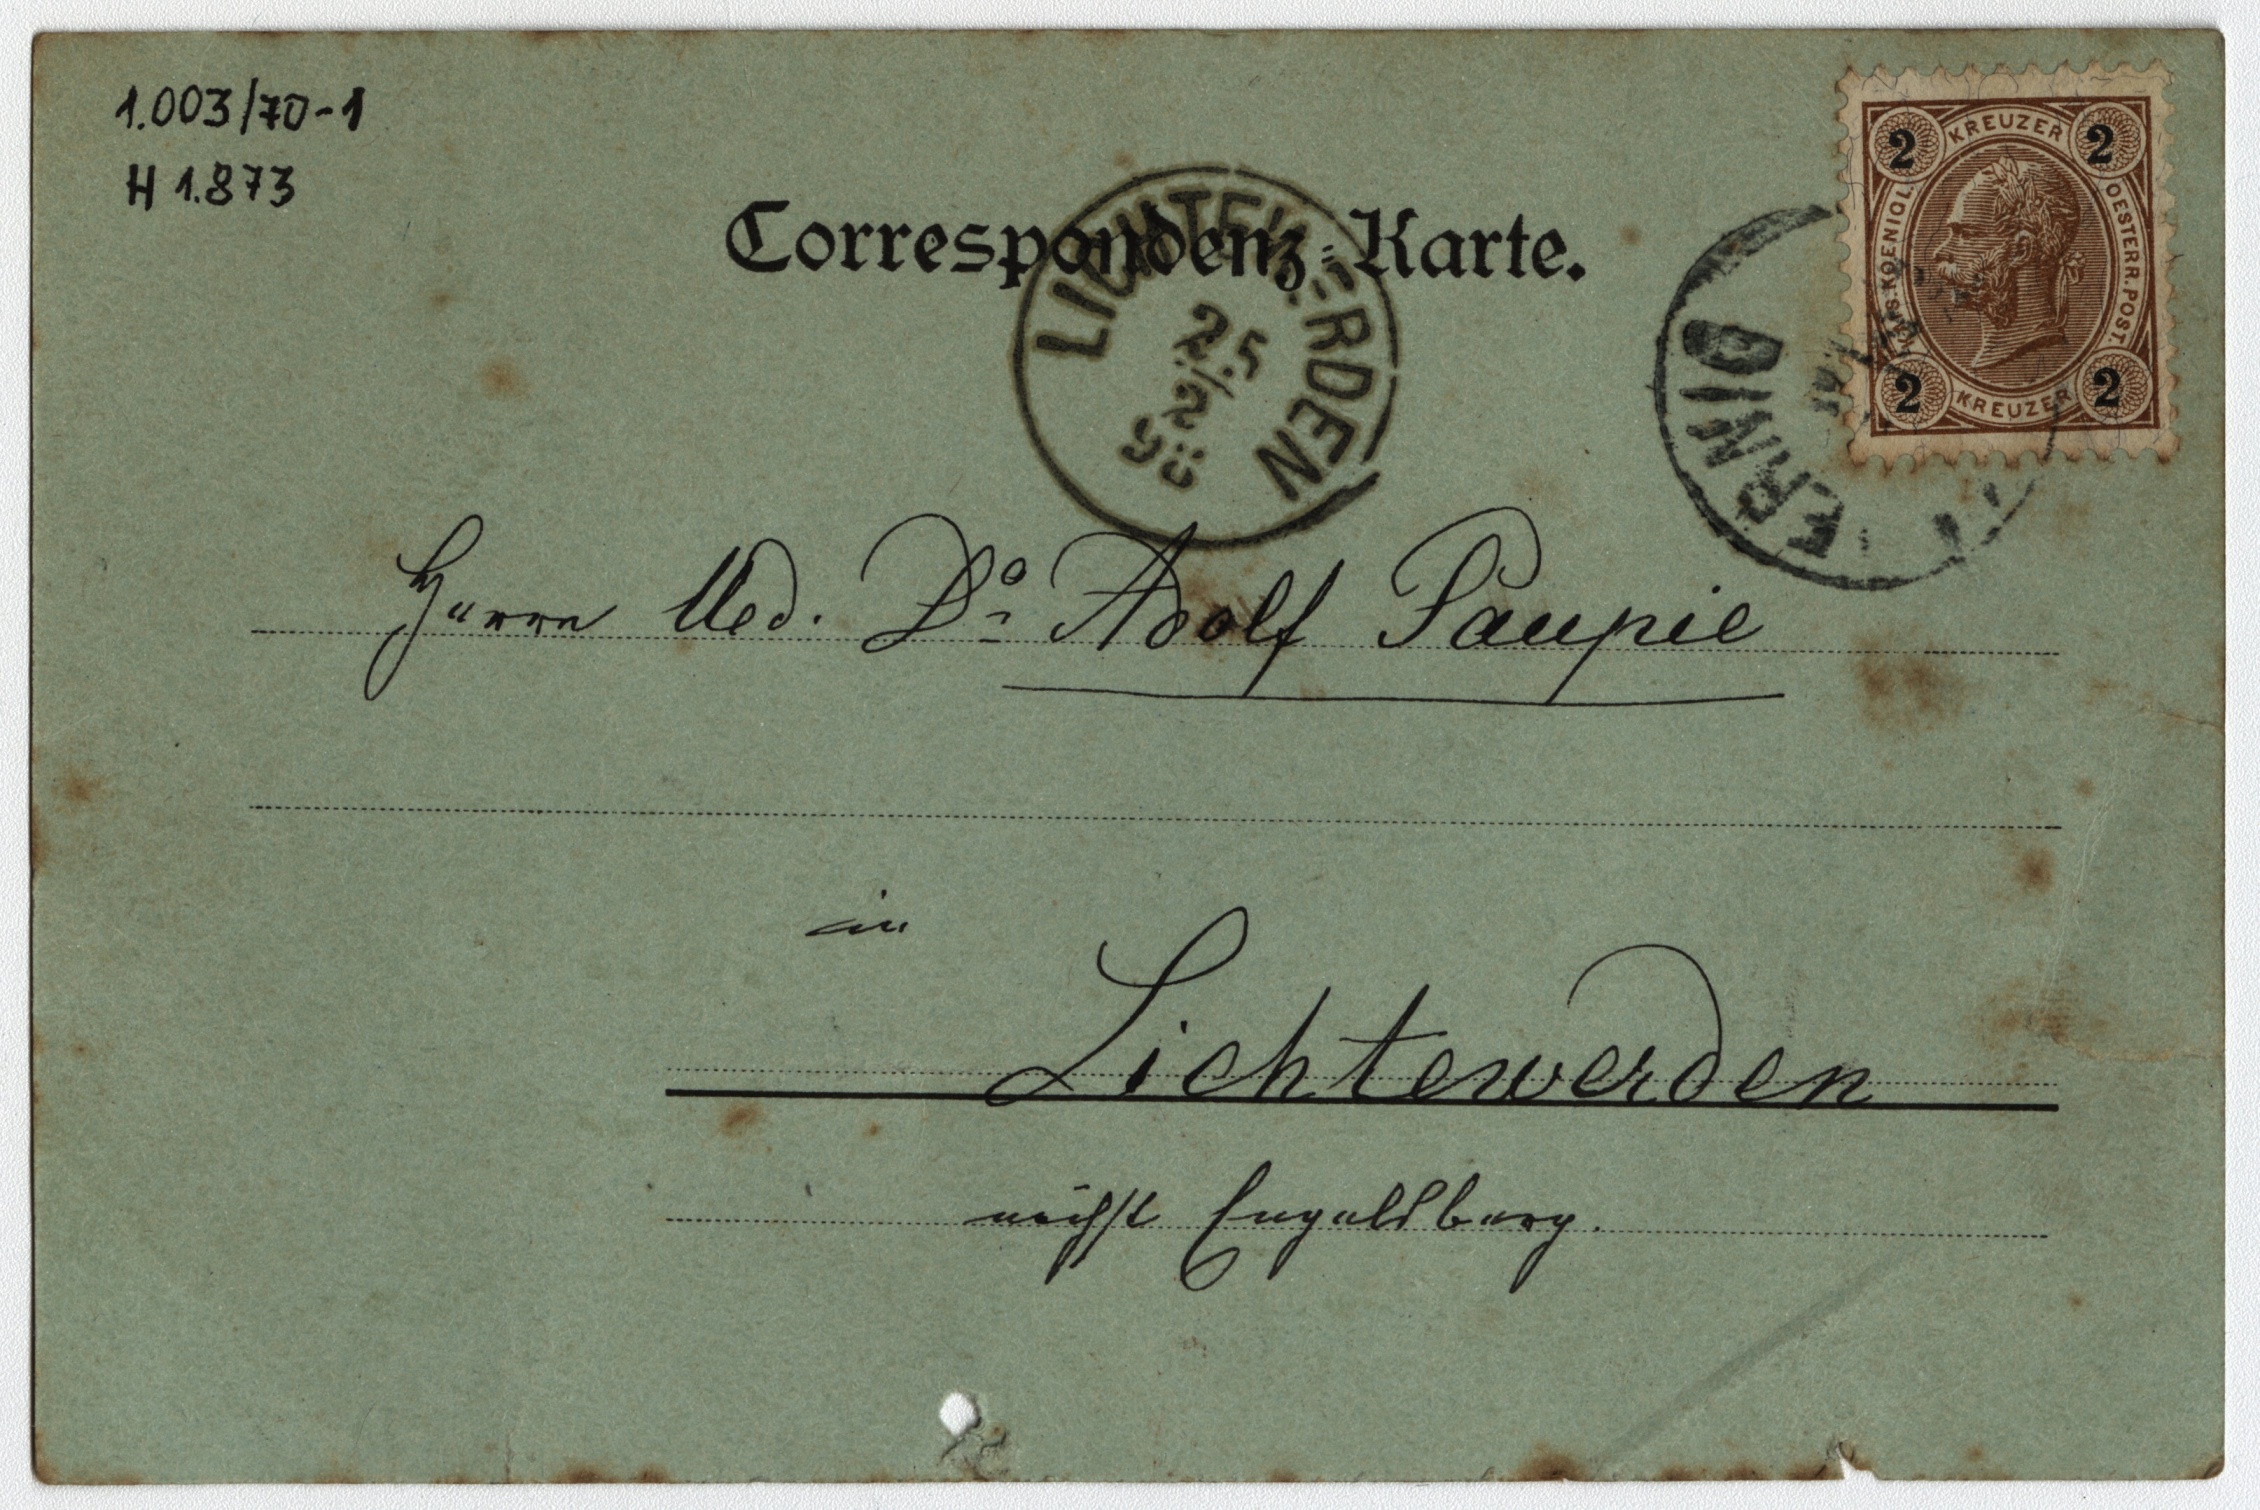 1.003/70-1
H 1.873
Correspondenz-Karte.
LICHTEWERDEN
25
2
98
KREUZER
2 2
KAIS. KOENIGL. OESTERR. POST.
2 2
KREUZER
Herrn Med. Dr Adolf Paupie
in
Lichtewerden
nächst Engelsberg.